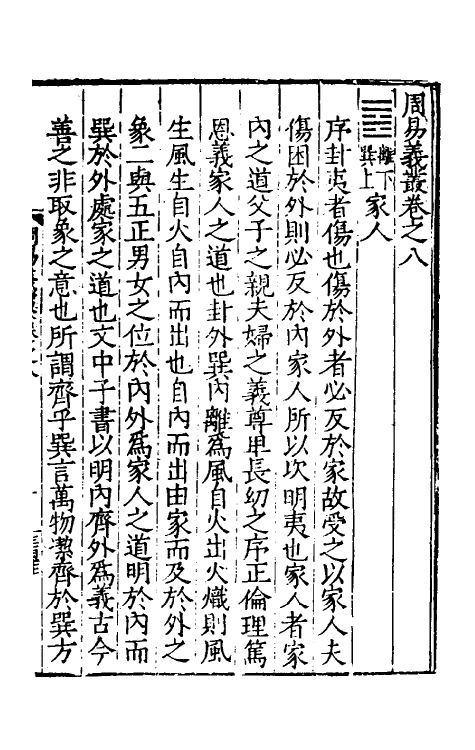 周易義叢卷之八
離下
巽上
家人
序卦夷者傷也傷於外者必反於家故受之以家人夫
傷困於外則必反於內家人所以次明夷也家人者家
內之道父子之親夫婦之義尊卑長幼之序正倫理篤
恩義家人之道也卦外巽內離為風自火出火熾則風
生風生自火自內而出也自內而出由家而及於外之
象二與五正男女之位於內外為家人之道明於內而
巽於外處家之道也文中子書以明內齊外為義古今
善之非取象之意也所謂齊乎巽言萬物潔齊於巽方